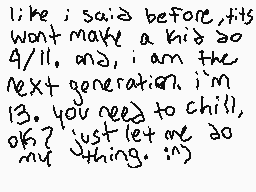 like i said before, tits
wont make a kid do
9/11. and, i am the
next generation. i'm
13. you need to chill,
ok? just let me do
my thing. :n)